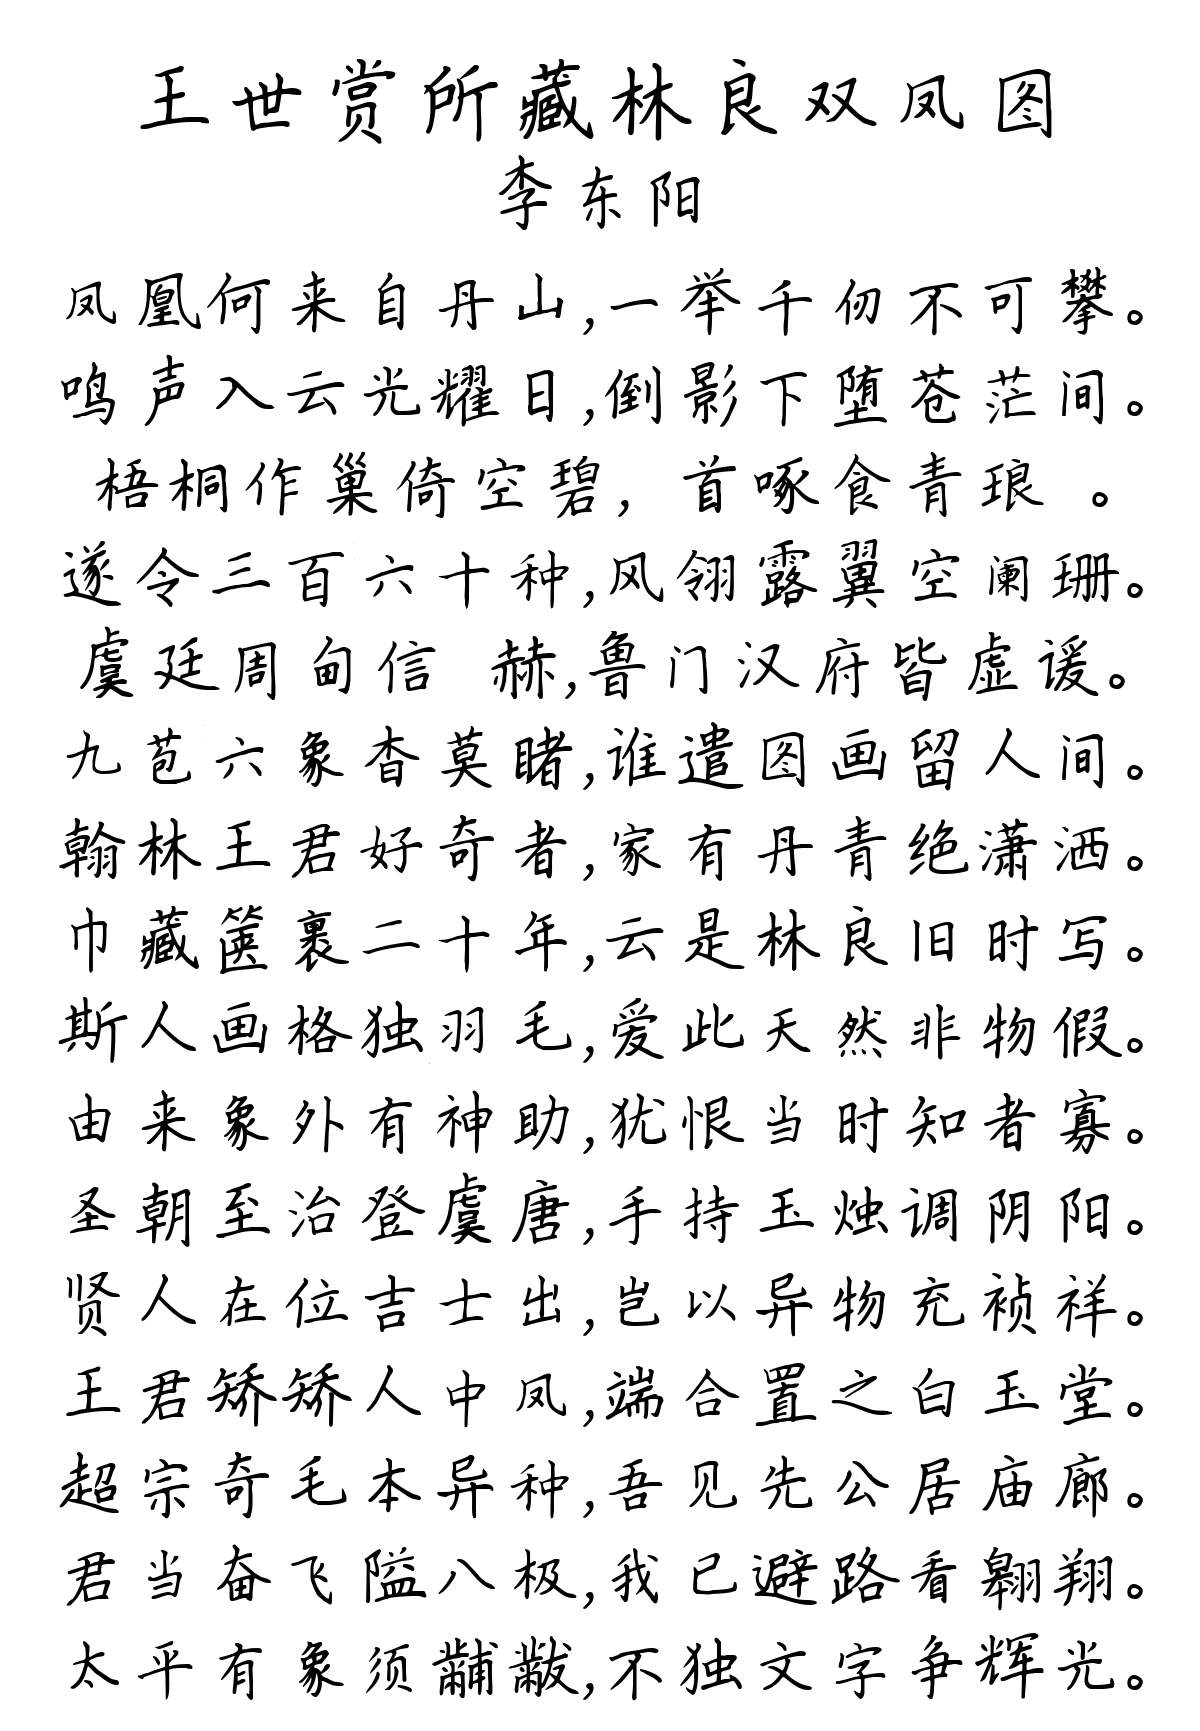 王世赏所藏林良双凤图
李东阳
凤凰何来自丹山,一举千仞不可攀。
鸣声入云光耀日,倒影下堕苍茫间。
梧桐作巢倚空碧,首啄食青琅 。
遂令三百六十种,风翎露翼空阑珊。
虞廷周甸信 赫,鲁门汉府皆虚谖。
九苞六象杳莫睹,谁遣图画留人间。
翰林王君好奇者,家有丹青绝潇洒。
巾藏箧裹二十年,云是林良旧时写。
斯人画格独羽毛,爱此天然非物假。
由来象外有神助,犹恨当时知者寡。
圣朝至治登虞唐,手持玉烛调阴阳。
贤人在位吉士出,岂以异物充祯祥。
王君矫矫人中凤,端合置之白玉堂。
超宗奇毛本异种,吾见先公居庙廊。
君当奋飞隘八极,我已避路看翱翔。
太平有象须黼黻,不独文字争辉光。